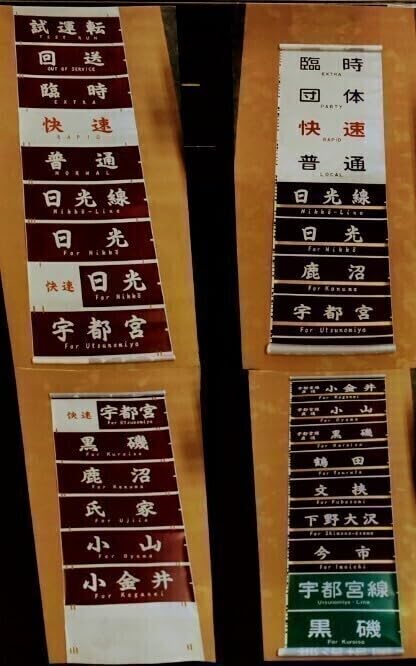 試運転
TEST RUN
回送
OUT OF SERVICE
臨時
EXTRA
快速
RAPID
普通
NORMAL
日光線
Nikkō-Line
日光
For Nikkō
快速 日光
For Nikkō
宇都宮
For Utsunomiya
臨時
EXTRA
団体
PARTY
快速
RAPID
普通
LOCAL
日光線
Nikkō-Line
日光
For Nikkō
鹿沼
For Kanuma
宇都宮
For Utsunomiya
快速 宇都宮
For Utsunomiya
黒磯
For Kuroiso
鹿沼
For Kanuma
氏家
For Ujiie
小山
For Oyama
小金井
For Koganei
宇都宮線直通 小金井
For Koganei
宇都宮線直通 小山
For Oyama
宇都宮線直通 黒磯
For Kuroiso
鶴田
For Tsuruta
文挟
For Fubasami
下野大沢
For Shimotsuke-Ōsawa
今市
For Imaichi
宇都宮線
Utsunomiya-Line
黒磯
For Kuroiso